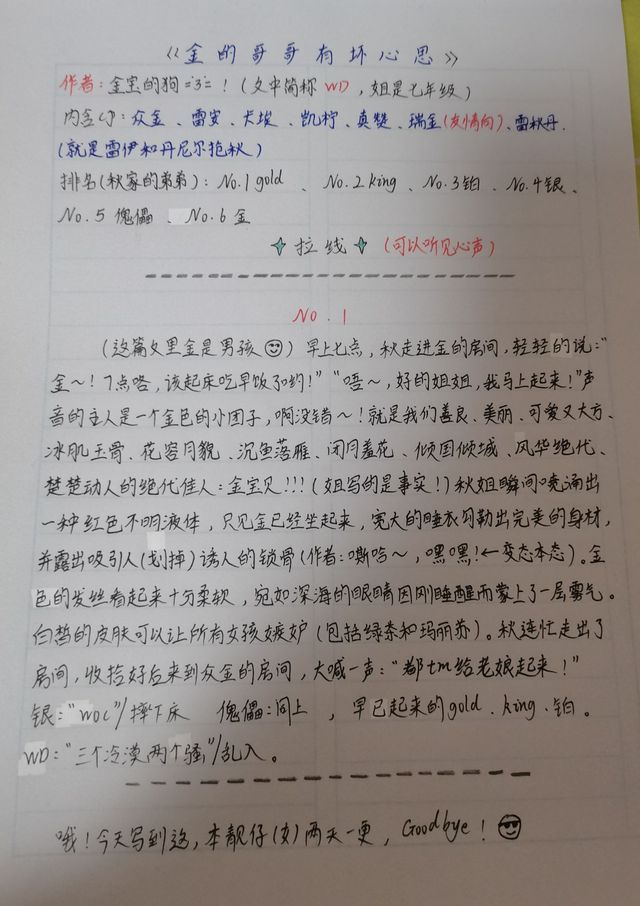 《金的哥哥有坏心思》
作者：金宝的狗='3'=！（文中简称WD，姐是七年级）
内含CP：众金、雷安、卡埃、凯柠、真赞、瑞金(友情向)、雷秋丹.
(就是雷伊和丹尼尔抢秋)
排名(秋家的弟弟)：No.1 gold 、No.2 king、No.3铂、No.4银、
No.5 傀儡、No.6 金
拉线 (可以听见心声)
No.1
(这篇文里金是男孩😎)早上七点，秋走进金的房间，轻轻的说："
金～！7点咯，该起床吃早饭了哟！" "唔～，好的姐姐，我马上起来！"声
音的主人是一个金色的小团子，啊没错～！就是我们善良、美丽、可爱又大方、
冰肌玉骨、花容月貌、沉鱼落雁、闭月羞花、倾国倾城、风华绝代、
楚楚动人的绝代佳人：金宝贝!!!(姐写的是事实！)秋姐瞬间喷涌出
一种红色不明液体，只见金已经坐起来，宽大的睡衣勾勒出完美的身材，
并露出吸引人(划掉)诱人的锁骨(作者：嘶哈～，嘿嘿！←变态本态)。金
色的发丝看起来十分柔软，宛如深海的眼睛因刚睡醒而蒙上了一层雾气。
白皙的皮肤可以让所有女孩嫉妒(包括绿奈和玛丽苏)。秋连忙走出了
房间，收拾好后来到众金的房间，大喊一声："都tm给老娘起来！"
银："woc"/摔下床 傀儡：同上 ，早已起来的gold、king、铂。
WD："三个冷漠两个骚"/乱入。
哦！今天写到这，本靓仔(女)两天一更，Goodbye！😎